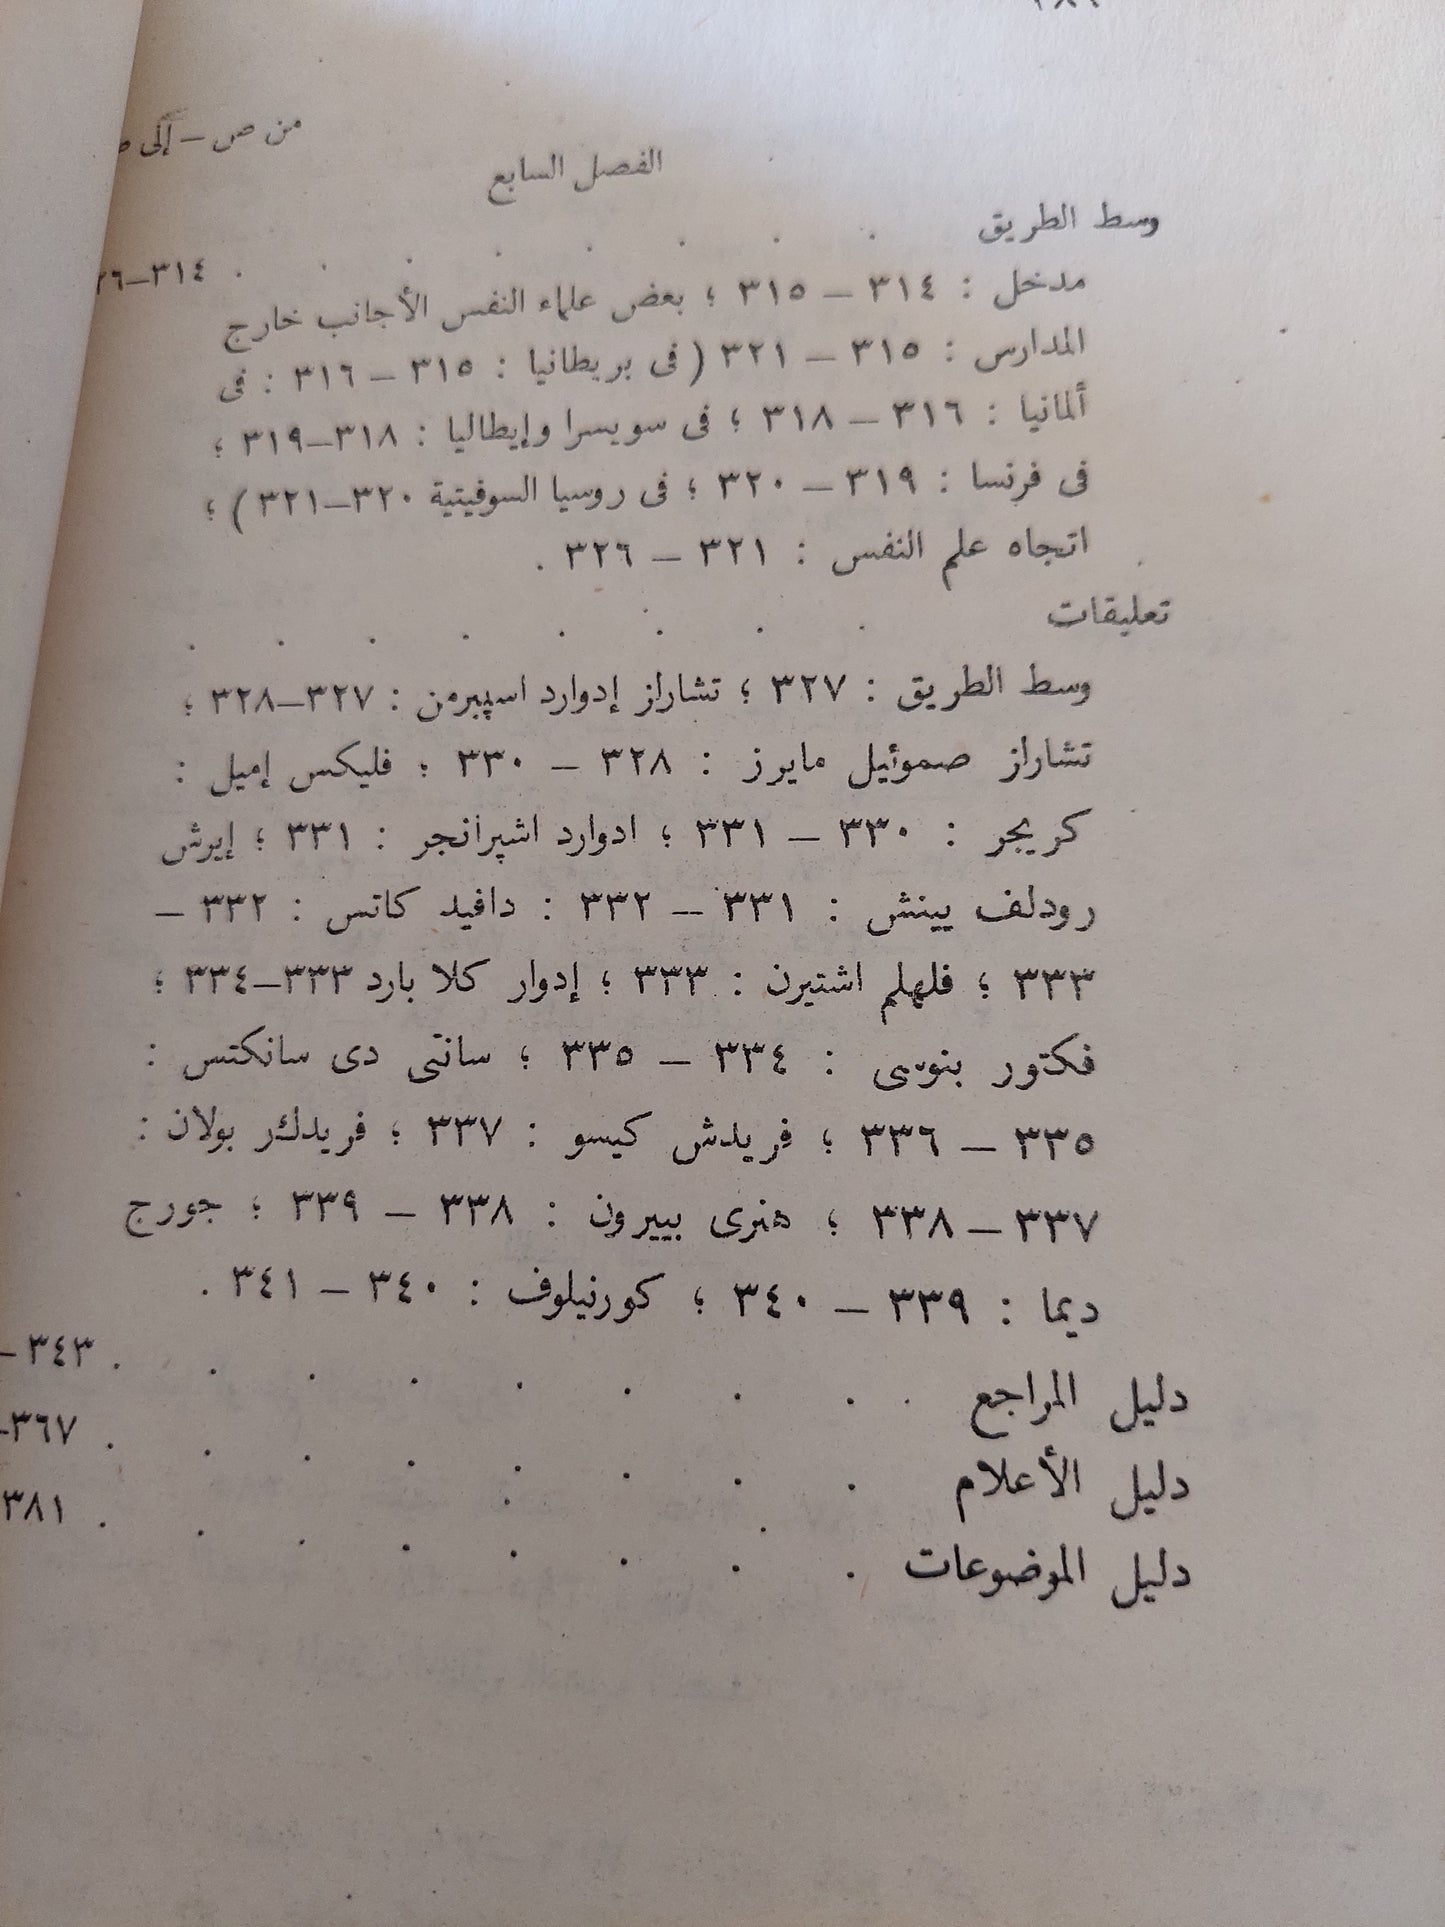 من ص – إلى
الفصل السابع
وسط الطريق . . . . . . . . ٣١٤–
مدخل : ٣١٤ – ٣١٥ ؛ بعض علماء النفس الأجانب خارج
المدارس : ٣١٥ – ٣٢١ ( فى بريطانيا : ٣١٥ – ٣١٦ : فى
ألمانيا : ٣١٦ – ٣١٨ ؛ فى سويسرا وإيطاليا : ٣١٨–٣١٩ ؛
فى فرنسا : ٣١٩ – ٣٢٠ ؛ فى روسيا السوفيتية ٣٢٠–٣٢١ ) ؛
اتجاه علم النفس : ٣٢١ – ٣٢٦ .
تعليقات . . . . . . . .
وسط الطريق : ٣٢٧ ؛ تشارلز إدوارد اسپيرمن : ٣٢٧–٣٢٨ ؛
تشارلز صموئيل مايرز : ٣٢٨ – ٣٣٠ ؛ فليكس إميل :
كريجر : ٣٣٠ – ٣٣١ ؛ ادوارد اشپرانجر : ٣٣١ ؛ إيرش
رودلف يينش : ٣٣١ – ٣٣٢ : دافيد كاتس : ٣٣٢ –
٣٣٣ ؛ فلهلم اشتيرن : ٣٣٣ ؛ إدوار كلا بارد ٣٣٣–٣٣٤ ؛
فكتور بنوسى : ٣٣٤ – ٣٣٥ ؛ سانتى دى سانكتس :
٣٣٥ – ٣٣٦ ؛ فريدش كيسو : ٣٣٧ ؛ فريدلر بولان :
٣٣٧ – ٣٣٨ ؛ هنرى بييرون : ٣٣٨ – ٣٣٩ ؛ جورج
ديما : ٣٣٩ – ٣٤٠ ؛ كورنيلوف : ٣٤٠ – ٣٤١ .
دليل المراجع . . . . . . . . ٣٤٣ –
دليل الأعلام . . . . . . . . ٣٦٧–
دليل الموضوعات . . . . . . . . ٣٨١